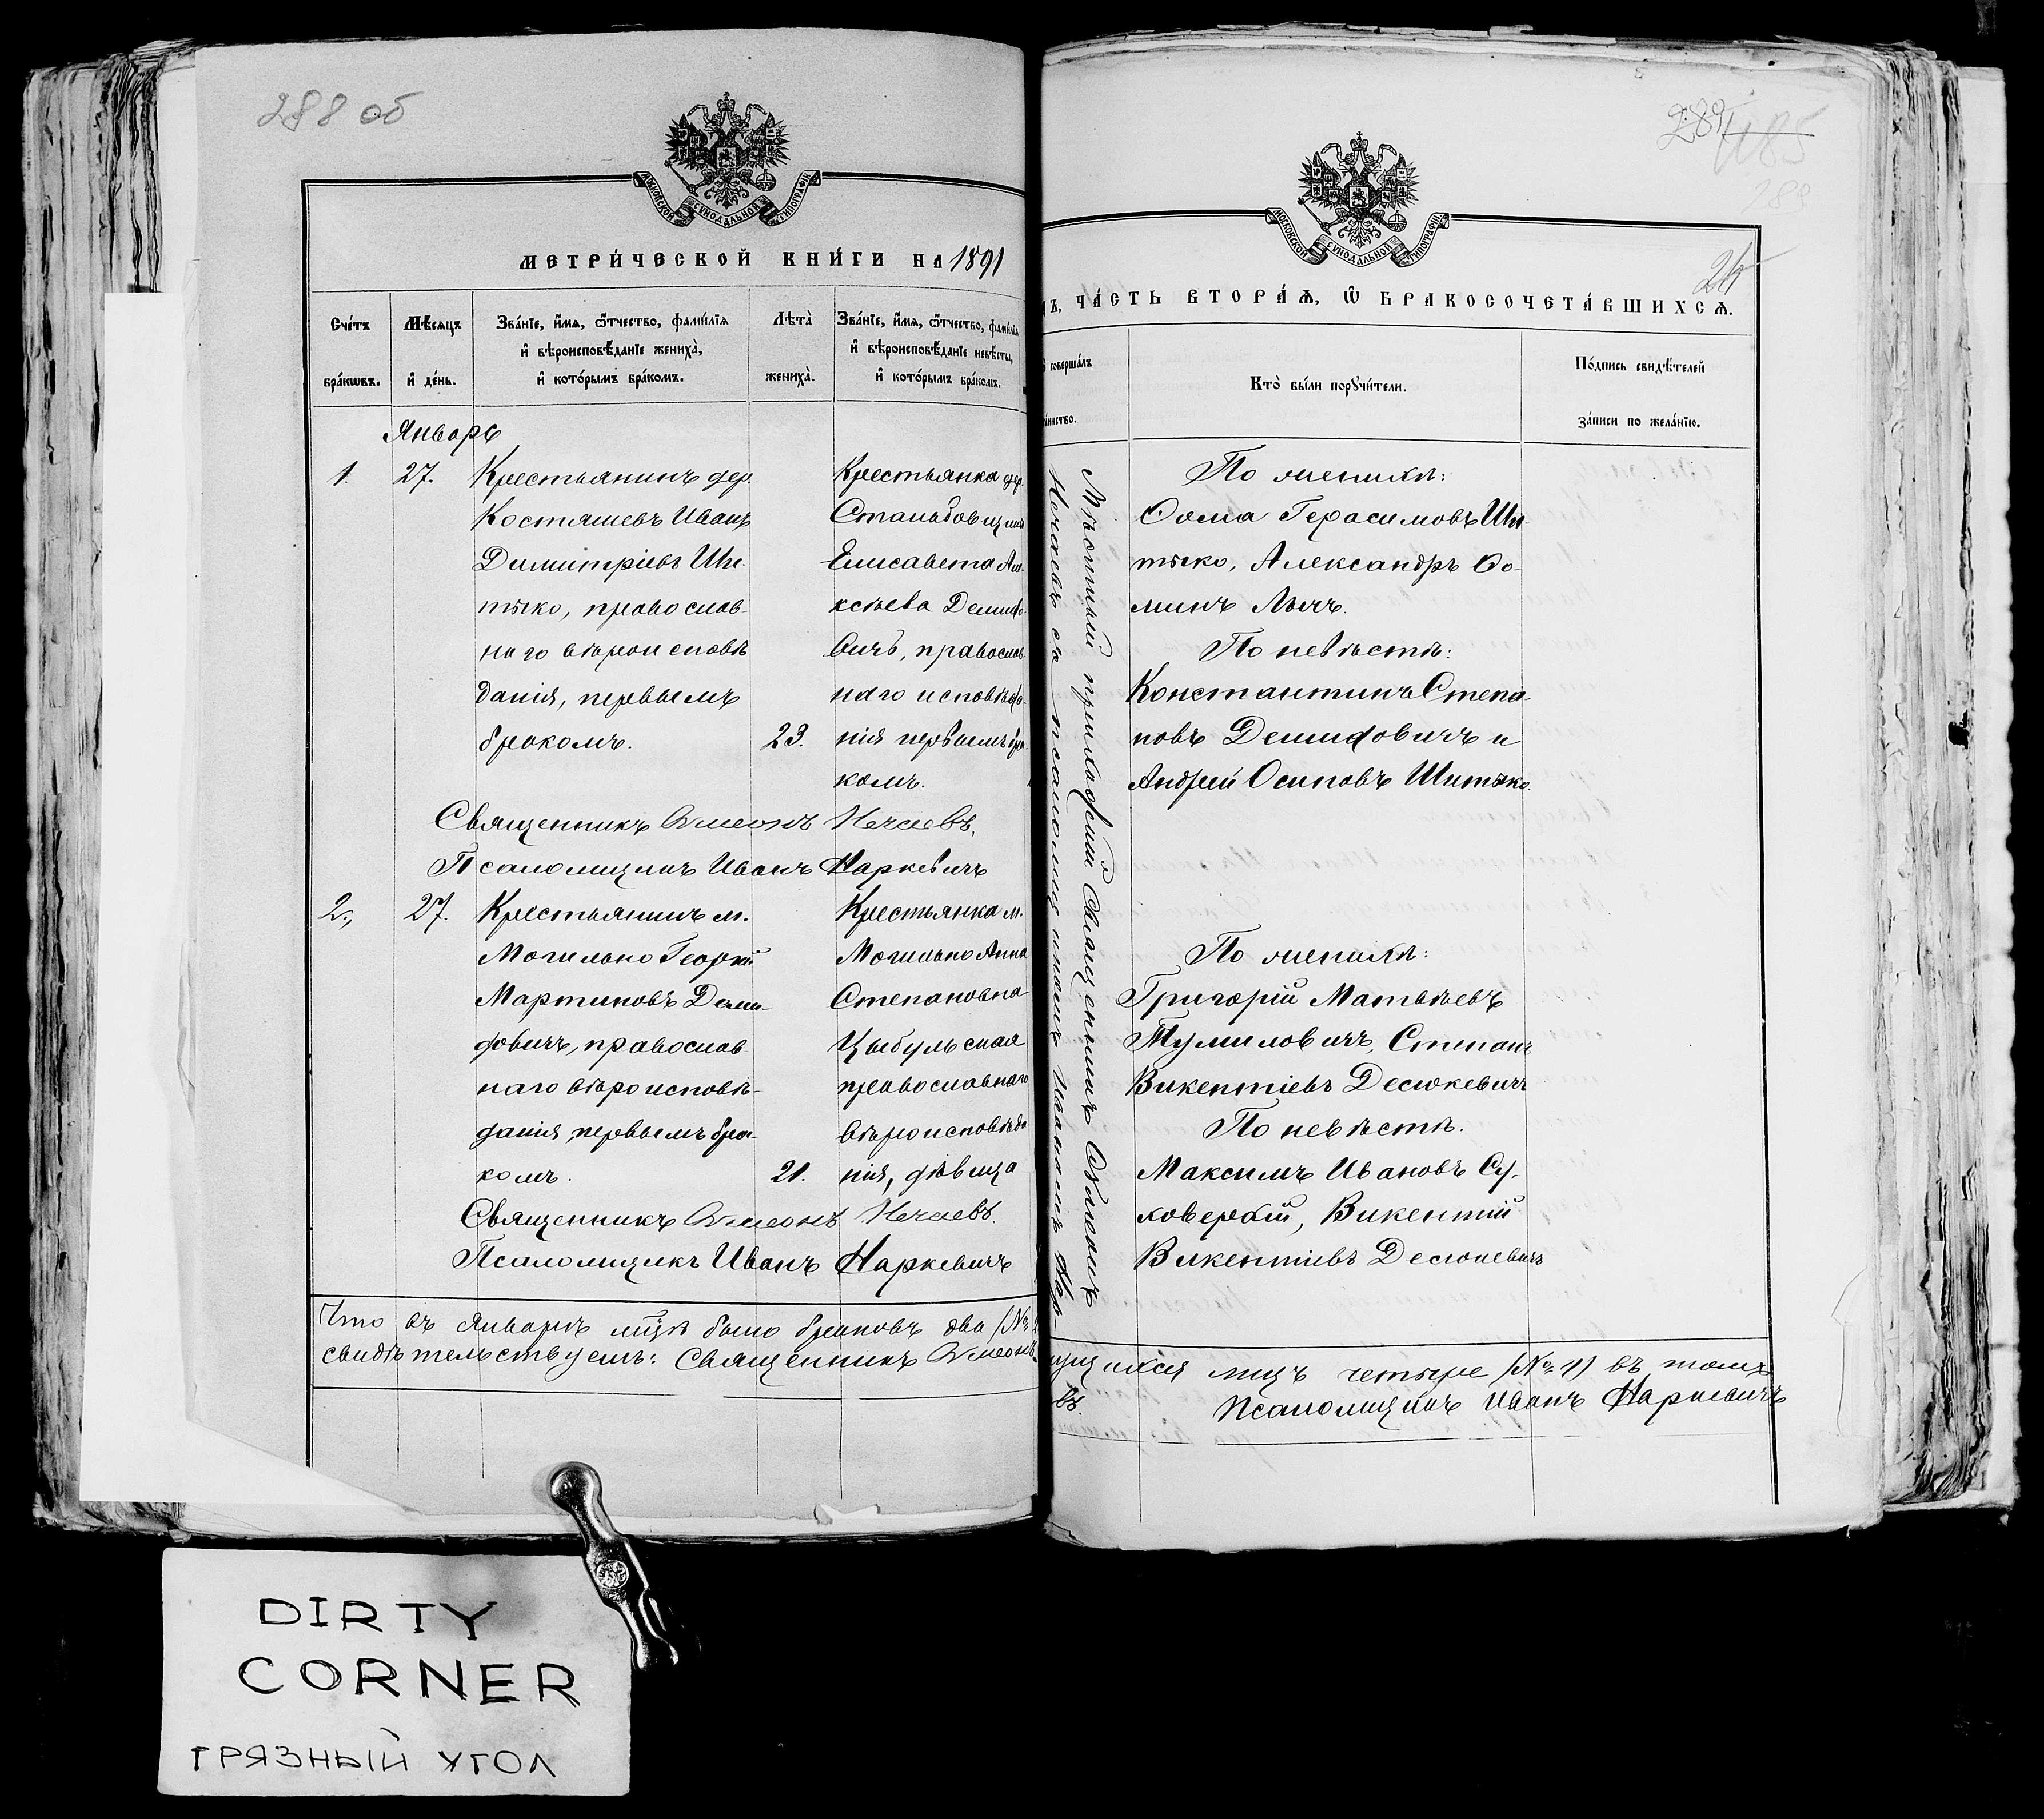 288 об
МОСКОВСКОЙ СУНОДАЛЬНОЙ ТИПОГРАФІИ
МЕТРИ́ЧЕСКОЙ КНИ́ГИ НА 1891
Сче́тъ бра́кωвъ.
Мѣ́сяцъ и҆ де́нь.
Зва́нїе, и҆́мя, ѻ҆́тчество, фами́лїя
и҆ вѣроисповѣ́данїе жениха̀,
и҆ кото́рымъ бра́комъ.
Лѣта̀
жениха̀.
Зва́нїе, и҆́мя, ѻ҆́тчество, фами́лїя
и҆ вѣроисповѣ́данїе невѣ́сты,
и҆ кото́рымъ бра́комъ.
Январь
1. 27.
Крестьянинъ дер.
Костяшевъ Иванъ
Димитріевъ Ши-
тько, православ-
наго вѣроисповѣ
данія, первымъ
бракомъ. 23.
Крестьянка дер.
Елисавета Але-
ксѣева Демидо-
вичъ, православ-
наго исповѣда-
нія первымъ бра-
комъ.
Священникъ Симеонъ Нечаевъ.
Псаломщикъ Иванъ Наркевичъ
2., 27.
Крестьянинъ м.
Могильно Георгій
Мартиновъ Деми-
довичъ, православ-
наго вѣроисповѣ-
данія, первымъ бра-
комъ. 21.
Крестьянка м.
Могильно Анна
Степановна
Цыбульская
православнаго
вѣроисповѣда
нія, дѣвица
Священникъ Симеонъ Нечаевъ.
Псаломщикъ Иванъ Наркевичъ
Что въ Январѣ мцѣ было браковъ два (№ 2
свидѣтельствуемъ: Священникъ Симеонъ
289
24
МОСКОВСКОЙ СУНОДАЛЬНОЙ ТИПОГРАФІИ
ЧА́СТЬ ВТОРА́Я, Ѡ҆ БРАКОСОЧЕТА́ВШИХСЯ.
совершáлъ
Кто̀ бы́ли порꙋчи́тели.
По́дпись свидѣ́телей
за́писи по жела́нїю.
Мѣстный приходскій Священникъ Симеонъ
Нечаевъ съ псаломщикомъ Иваномъ Нар-
По женихѣ:
Ѳома Герасимовъ Ши-
тько, Александръ Ѳо-
минъ
По невѣстѣ:
Константинъ Степа-
новъ Демидовичъ и
Андрей Осиповъ Шитько.
По женихѣ:
Григорій Матвѣевъ
Тумиловичъ, Степанъ
Викентіевъ Десюкевичъ
По невѣстѣ.
Максимъ Ивановъ Су-
ховерскій, Викентій
Викентіевъ Десюкевичъ
щихся лицъ четыре (№ 4) въ томъ
въ. Псаломщикъ Иванъ Наркевичъ
DIRTY
CORNER
ГРЯЗНЫЙ УГОЛ